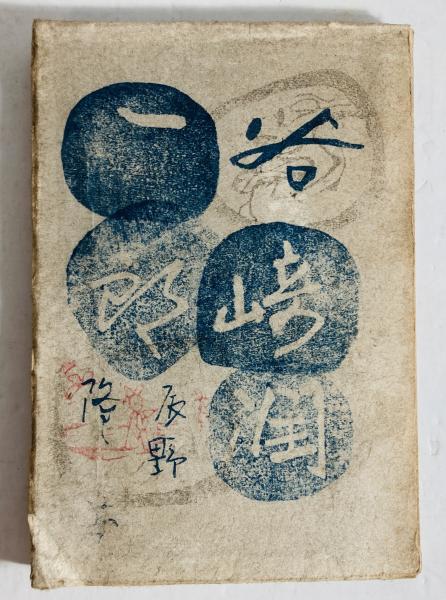 谷崎潤
一郎
辰野
隆